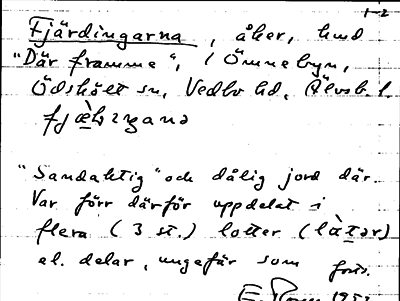 1-2
Fjärdingarna, åker, hmd
"Där framme", i Ömnebyn,
Ödskölt sn, Vedbo hd, Älvsb. l.
"Sandaktig" och dålig jord där.
Var förr därför uppdelat i
flera (3 st.) lotter (là̀tər)
el. delar, ungefär som forts.
E.